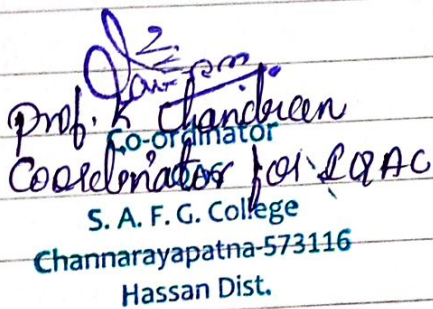 Prof. K Chandreen
Co-ordinator
Coordinator for IQAC
S. A. F. G. College
Channarayapatna-573116
Hassan Dist.